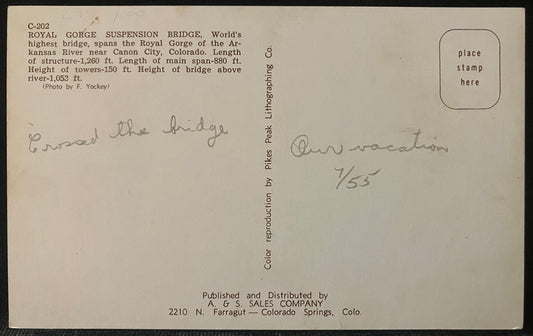 C-202
ROYAL GORGE SUSPENSION BRIDGE, World's
highest bridge, spans the Royal Gorge of the Ar-
kansas River near Canon City, Colorado. Length
of structure-1,260 ft. Length of main span-880 ft.
Height of towers-150 ft. Height of bridge above
river-1,053 ft.
(Photo by F. Yockey)
Crossed the bridge
Color reproduction by Pikes Peak Lithographing Co.
place
stamp
here
Our vacation
7/55
Published and Distributed by
A. & S. SALES COMPANY
2210 N. Farragut — Colorado Springs, Colo.